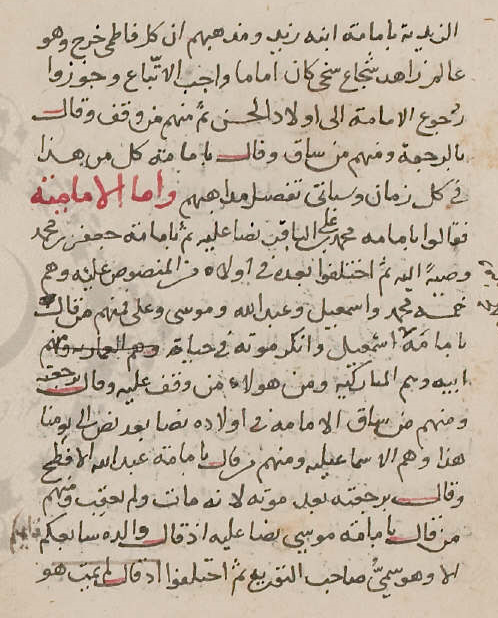 الزيدية بامامة ابنه زيد ومذهبهم ان كل فاطمي خرج وهو
عالم زاهد شجاع سخي كان اماما واجب الاتباع وجوزوا
رجوع الامامة الى اولاد الحسن ثم منهم من وقف وقال
بالرجعة ومنهم من ساق وقال بامامة كل من هذا
في كل زمان وسياتي تفصيل مذاهبهم واما الامامية
فقالوا بامامة محمد بن علي الباقر نصا عليه ثم بامامة جعفر بن محمد
وصية اليه ثم اختلفوا بعده في اولاده من المنصوص عليه وهم
خمسة محمد واسمعيل وعبد الله وموسى وعلي فمنهم من قال
بامامة اسمعيل وانكر موته في حياة
ابيه وهم المباركية ومن هولاء من وقف عليه وقال برجعته
ومنهم من ساق الامامة في اولاده نصا بعد نص الى يومنا
هذا وهم الاسماعيلية ومنهم من قال بامامة عبد الله الافطح
وقال برجعته بعد موته لانه مات ولم يعقب ومنهم
من قال بامامة موسى نصا عليه اذ قال والده سابعكم قايمكم
الا وهو سمي صاحب التورية ثم اختلفوا اذ قال لم يمت هو